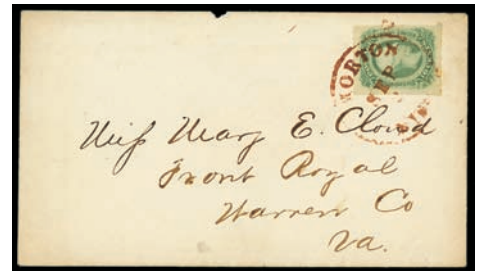 MORTON
SEP
MISS
Miss Mary E. Cloud
Front Royal
Warren Co
Va.